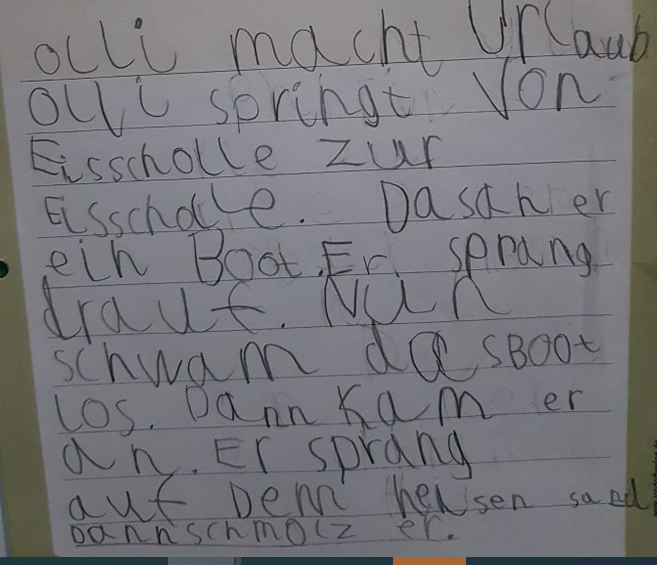 olli macht Urlaub
Olli springt Von
Eisscholle zur
Eisscholle. Dasah er
ein Boot. Er sprang
drauf. Nun
schwam dasBOOt
los. Dann kam er
an. Er sprang
auf Dem heusen sand
Dannschmolz er.